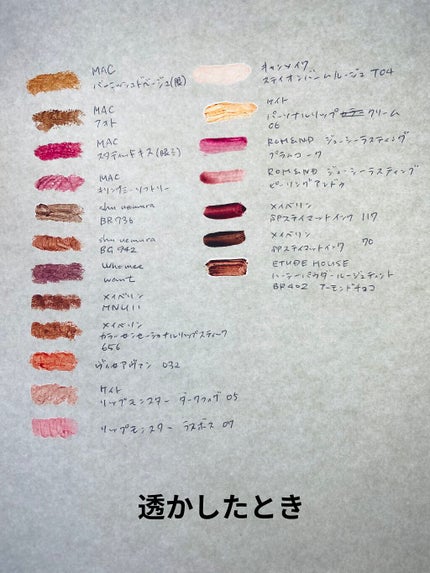 MAC
バーニッシュドベージュ(廃)
MAC
MAC
MAC
shu uemura
BR 736
shu uemura
BG 942
Whomee
want
メイベリン
MNU11
メイベリン
カラーセンセーショナルリップスティック
656
ヴィセアヴァン 032
ケイト
リップモンスター ダークフィグ 05
リップモンスター ラスボス 07
キャンメイク
ステイオンバームルージュ T04
ケイト
パーソナルリップ クリーム
06
ROM&ND ジューシーラスティング
プラムコーク
ROM&ND ジューシーラスティング
ピーリングアンドゥ
メイベリン
SPステイマットインク 117
メイベリン
SPステイマットインク 70
ETUDE HOUSE
BR402 アーモンドチョコ
透かしたとき